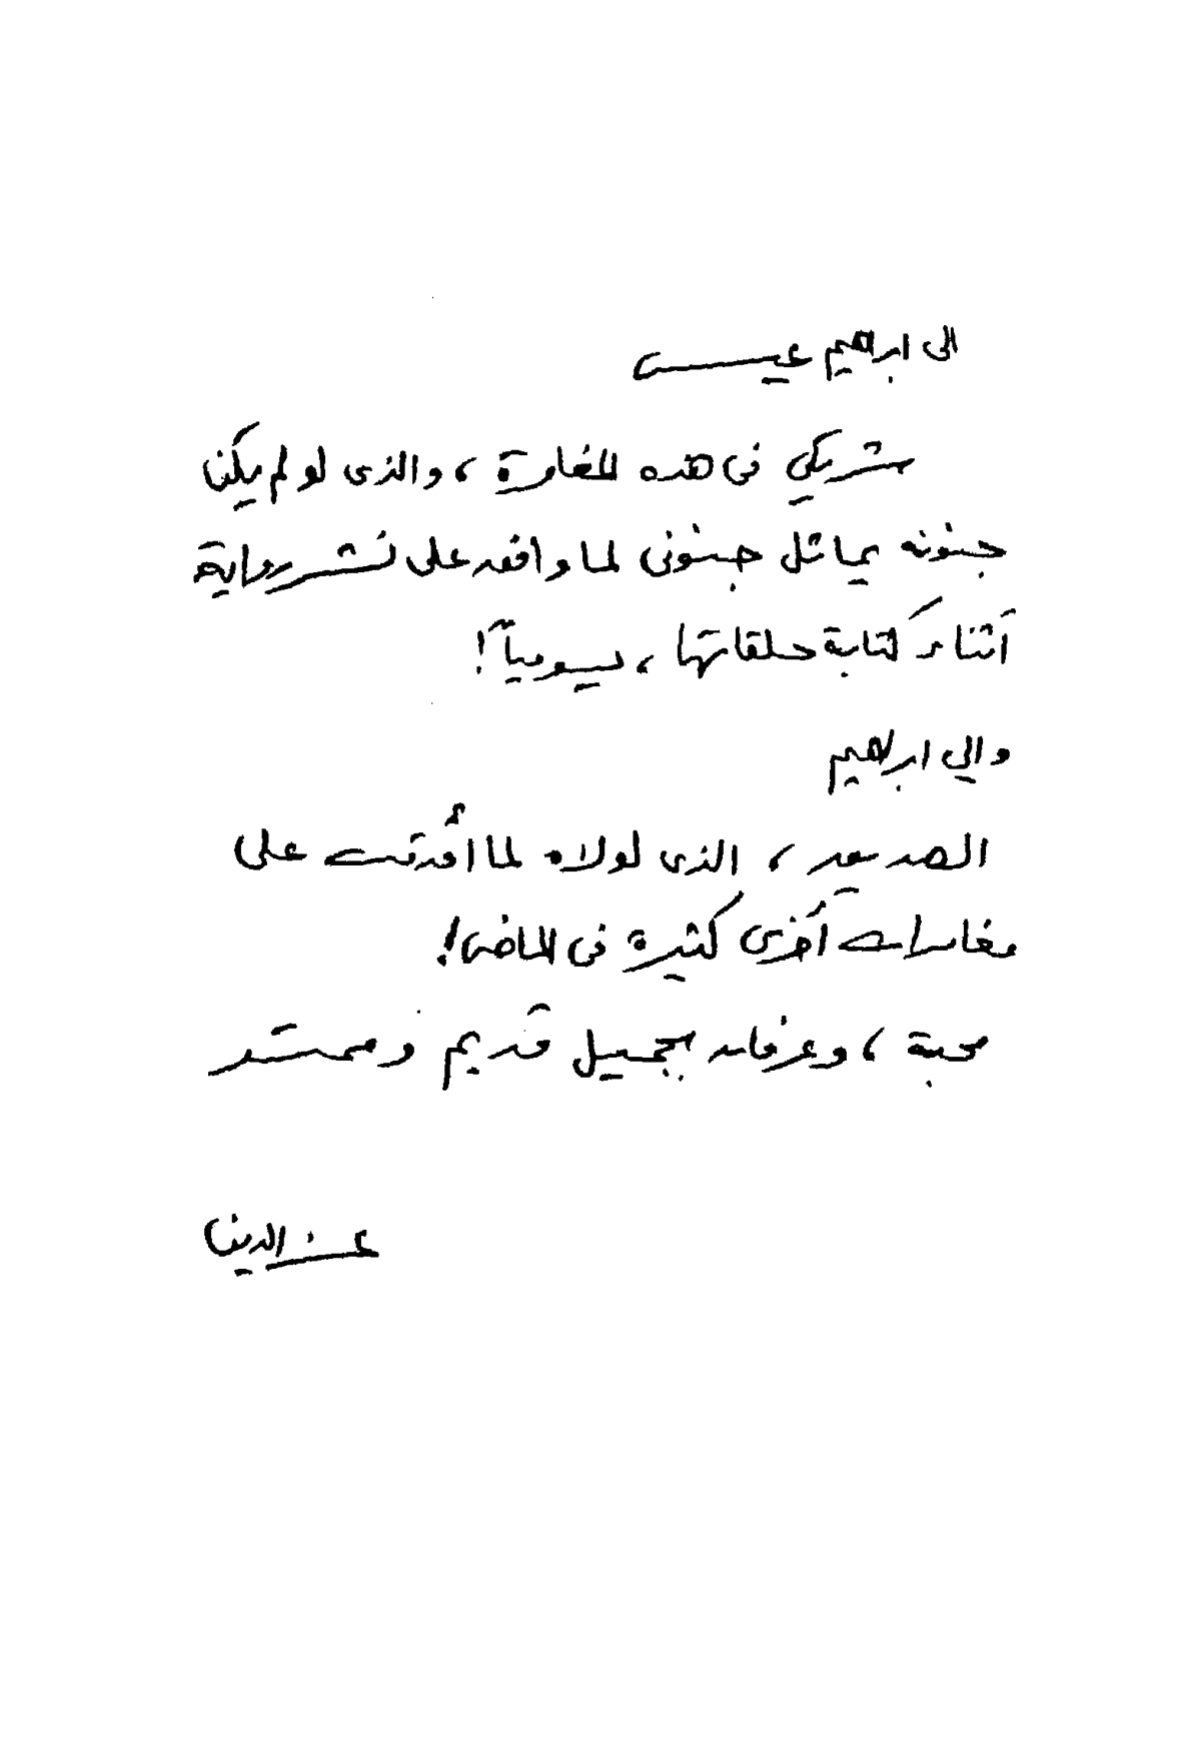 الى ابراهيم عيسى
شريكي فى هذه المغامرة، والذى لو لم يكن
جنونه يماثل جنونى لما وافق على نشر رواية
أثناء كتابة حلقاتها، يومياً!
والي ابراهيم
الصديق، الذى لولاه لما أقدمت على
مغامرات أخرى كثيرة فى الماضى!
محبة، وعرفان بجميل قديم وممتد
عز الدين